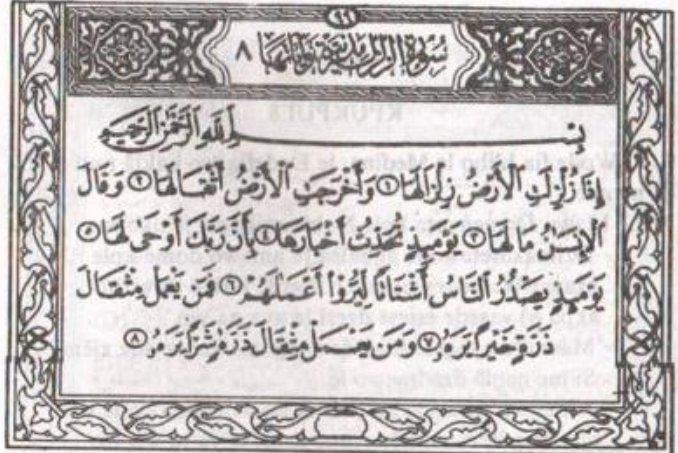 ٩٩
سورة الزلزلة مدنية وآياتها ٨
بِسْمِ اللَّهِ الرَّحْمَٰنِ الرَّحِيمِ
إِذَا زُلْزِلَتِ الْأَرْضُ زِلْزَالَهَا ١ وَأَخْرَجَتِ الْأَرْضُ أَثْقَالَهَا ٢ وَقَالَ
الْإِنسَٰنُ مَا لَهَا ٣ يَوْمَئِذٍ تُحَدِّثُ أَخْبَارَهَا ٤ بِأَنَّ رَبَّكَ أَوْحَىٰ لَهَا ٥
يَوْمَئِذٍ يَصْدُرُ النَّاسُ أَشْتَاتًا لِّيُرَوْا أَعْمَٰلَهُمْ ٦ فَمَن يَعْمَلْ مِثْقَالَ
ذَرَّةٍ خَيْرًا يَرَهُ ٧ وَمَن يَعْمَلْ مِثْقَالَ ذَرَّةٍ شَرًّا يَرَهُ ٨